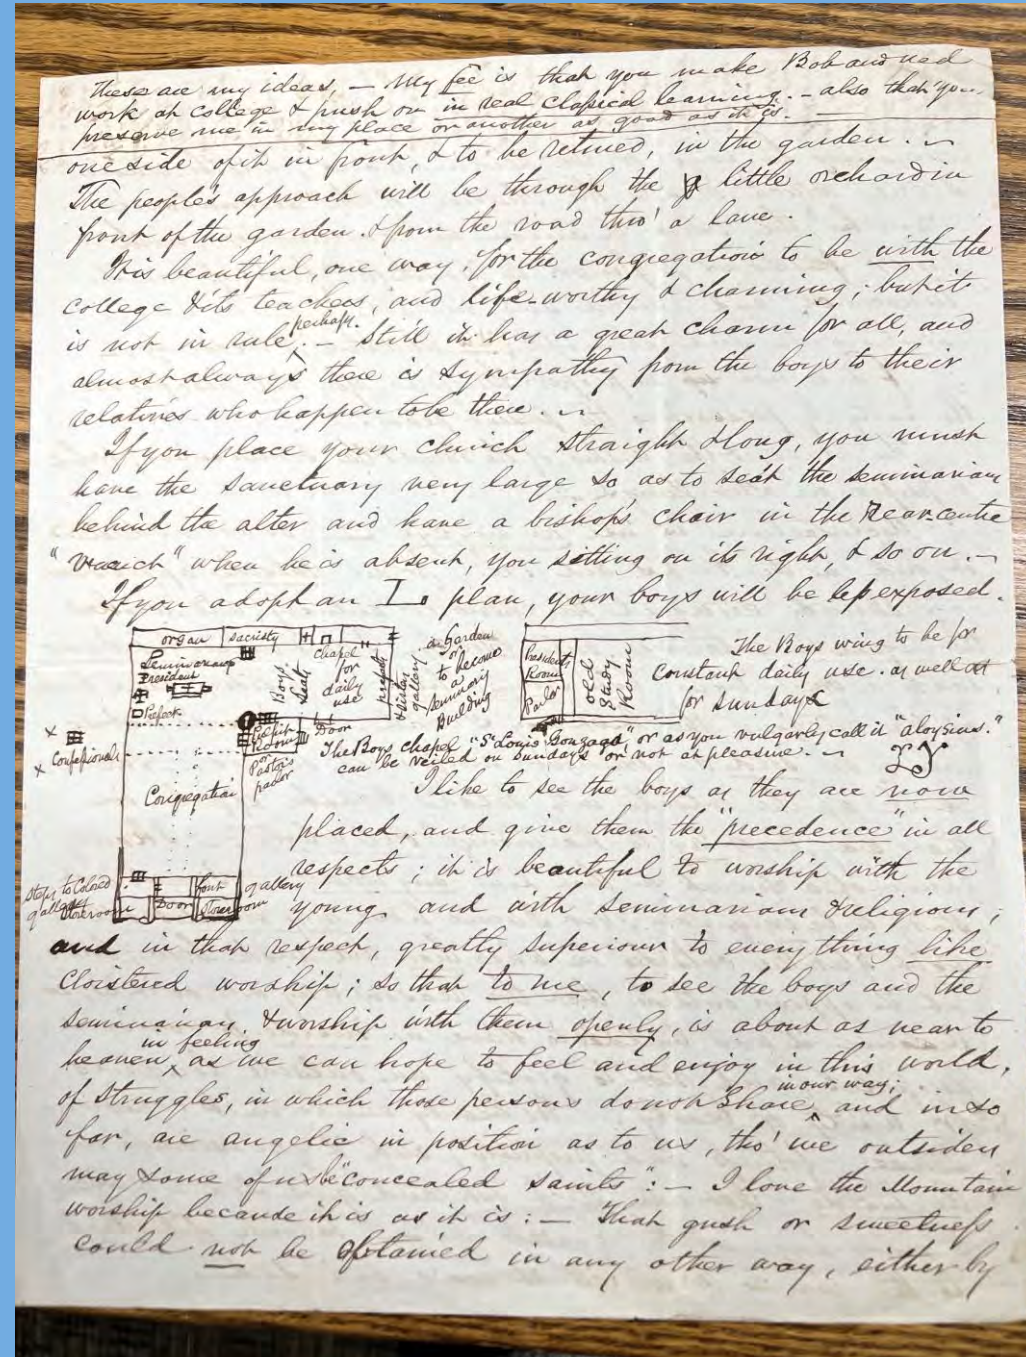 These are my ideas, — My fee is that you make Bob and Ned
work at college & push on in real classical learning. — also that you
preserve me in my place or another as good as it is. —
one side of it in front, & to be retired, in the garden. —
The people's approach will be through the little orchard in
front of the garden. & from the road thro' a lane.
It is beautiful, one way, for the congregation to be with the
college & its teachers, and life-worthy & charming; but it
is not in rule perhaps. — Still it has a great charm for all, and
almost always there is sympathy from the boys to their
relatives who happen to be there. —
If you place your church straight & long, you must
have the sanctuary very large so as to seat the seminarians
behind the alter and have a bishop's chair in the Rear-centre
when he is absent, you sitting on its right, & so on. —
If you adopt an L plan, your boys will be exposed.
organ sacristy
Seminarians
President
Prefect
Boys' seats
chapel
for
daily
use
prefects
gallery
a Garden
or
to become
a
Seminary
Building
Presidents
Room
Parlor
old
Study
Room
The Boys wing to be for
constant daily use. as well as
for Sundays
Door
or
Pastor's
parlor
x
x Confessionals
The Boys chapel "St Louis Gonzaga" or as you vulgarly call it "aloysius."
can be veiled on Sundays or not at pleasure. —
Congregation
I like to see the boys as they are now
placed, and give them the "precedence" in all
respects; it is beautiful to worship with the
steps to Colored
gallery
Storeroom
Door
font
Storeroom
gallery
young and with seminarians & religious;
and in that respect, greatly superiour to everything like
cloistered worship; so that to me, to see the boys and the
seminarians, & worship with them openly, is about as near to
heaven in feeling as we can hope to feel and enjoy in this world,
of struggles, in which those persons do not share in our way; and in so
far, are angelic in position as to us, tho' we outsiders
may some of us be "concealed saints": — I love the Mountain
worship because it is as it is: — That gush or sweetness
could not be obtained in any other way, either by